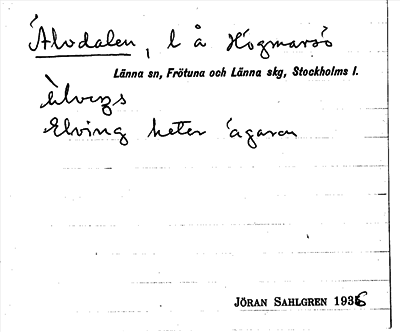 Älvdalen, l å Högmarsö
Länna sn, Frötuna och Länna skg, Stockholms l.
älvens
Elving heter ägaren
JÖRAN SAHLGREN 1936